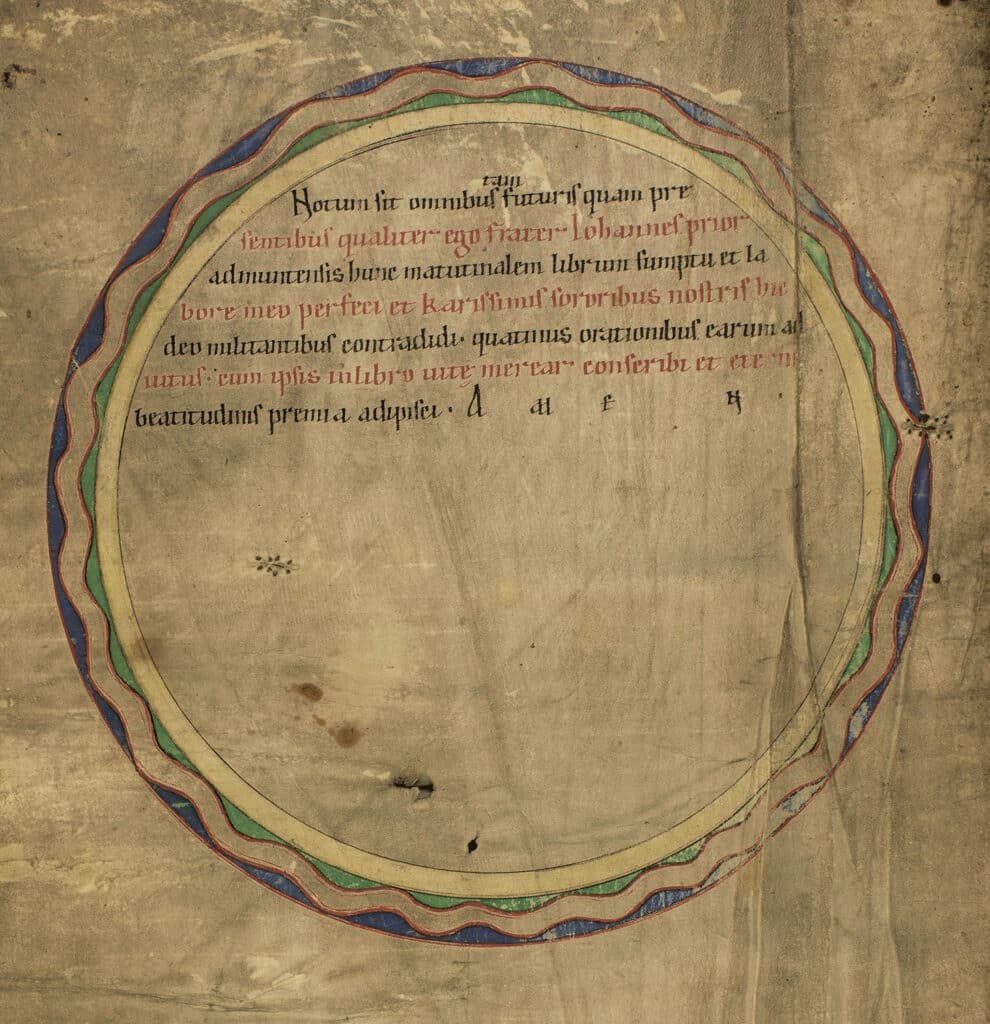 tam
Notum sit omnibus futuris quam pre
sentibus qualiter ego frater Iohannes prior
admuntensis hunc matutinalem librum sumptu et la
bore meo perfeci et karissimis sororibus nostris hic
deo militantibus contradidi· quatinus orationibus earum ad
iutus· cum ipsis in libro uitę merear conscribi et
beatitudinis premia adipisci· A M E N ·